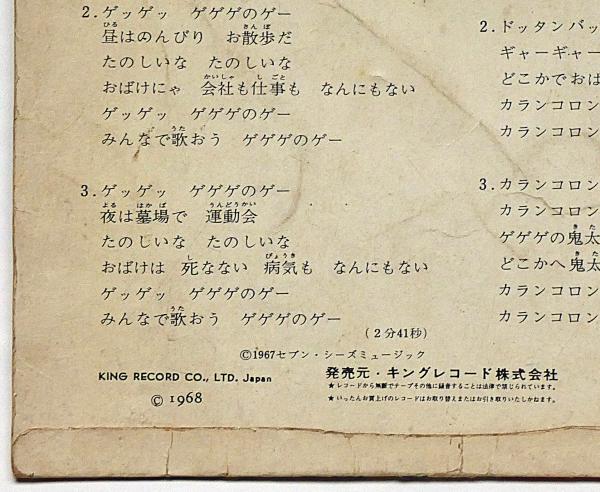 2. ゲッゲッ　ゲゲゲのゲー
昼はのんびり　お散歩だ
たのしいな　たのしいな
おばけにゃ　会社も仕事も　なんにもない
ゲッゲッ　ゲゲゲのゲー
みんなで歌おう　ゲゲゲのゲー
3. ゲッゲッ　ゲゲゲのゲー
夜は墓場で　運動会
たのしいな　たのしいな
おばけは　死なない　病気も　なんにもない
ゲッゲッ　ゲゲゲのゲー
みんなで歌おう　ゲゲゲのゲー
(2分41秒)
2. ドッタンバッ
ギャーギャー
どこかでおは
カランコロン
カランコロン
3. カランコロン
カランコロン
ゲゲゲの鬼太
どこかへ鬼太
カランコロン
カランコロン
©1967セブン・シーズミュージック
KING RECORD CO., LTD. Japan
© 1968
発売元・キングレコード株式会社
★レコードから無断でテープその他に録音することは法律で禁じられています。
★いったんお買上げのレコードはお取り替えまたはお引き取りいたしかねます。